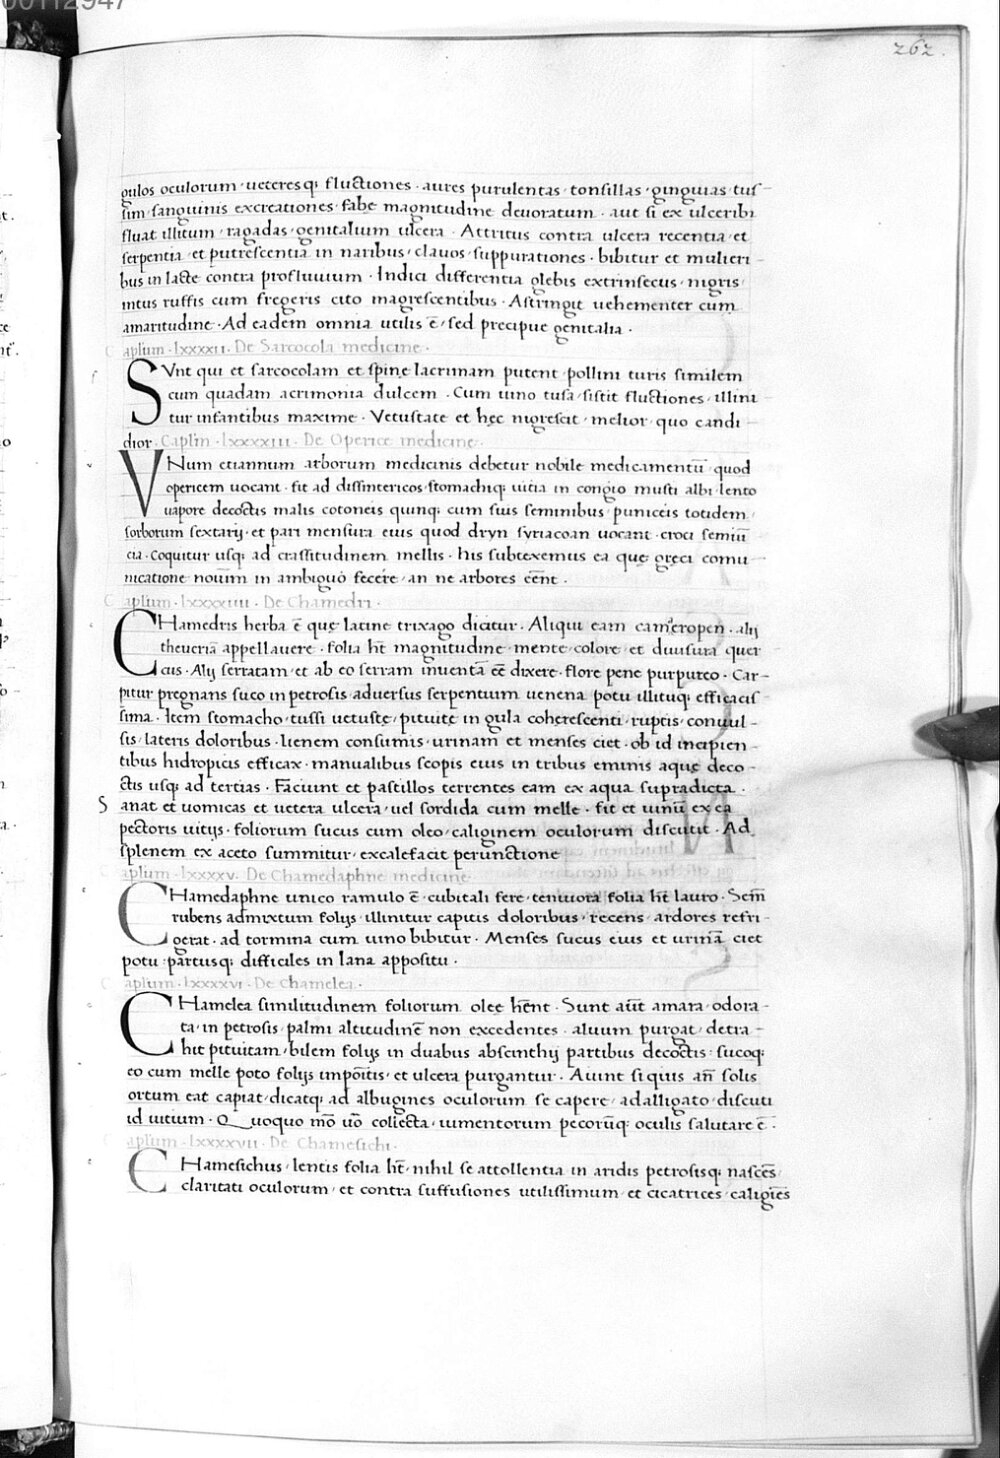 00112947
262.
gulos oculorum · ueteresq; fluctiones · aures purulentas · tonsillas · gingiuas · tus-
sim · sanguinis excreationes · fabę magnitudine deuoratum · aut si ex ulceribꝫ
fluat illitum · ragadas · genitalium ulcera · Attritus contra ulcera recentia · et
serpentia · et putrescentia in naribus · clauos · suppurationes · bibitur et mulieri-
bus in lacte contra profluuium · Indici differentia glebis extrinsecus · nigris ·
intus ruffis cum fregeris cito magrescentibus · Astringit uehementer cum
amaritudine · Ad eadem omnia utilis ē · sed precipue genitalia ·
Caplum · lxxxxii · De Sarcocola medicine ·
SVnt qui et sarcocolam et spine lacrimam putent · pollini turis similem
cum quadam acrimonia dulcem · Cum uino tusa · sistit fluctiones · illini
tur infantibus maxime · Vetustate et hęc nigrescit · melior · quo candi-
dior. Caplm · lxxxxiii · De Operice medicine ·
VNum etiannum arborum medicinis debetur nobile medicamentū · quod
opericem uocant · fit ad dissintericos · stomachiq; uitia in congio musti albi · lento
uapore decoctis malis cotoneis quinq; cum suis seminibus · puniceis totidem ·
sorborum sextarij · et pari mensura eius quod dryn syriacoan uocant · croci semiū
cia · Coquitur usq; ad crassitudinem mellis · his subtexemus ea quę gręci comu
nicatione nouīm in ambiguo fecere · an ne arbores cēnt ·
Caplum · lxxxxiiii · De Chamedri ·
CHamedris herba ē quę latine trixago dicitur · Aliqui eam cameropen · alij
theucriā appellauere · folia hēt magnitudine · mente · colore · et diuisura quer
cus · Alij serratam · et ab eo serram inuentā eē dixere · flore pene purpureo · Car-
pitur pregnans suco in petrosis · aduersus serpentium uenena potu illituq; efficacis-
sima · Item stomacho · tussi uetustę · pituitę in gula coherescenti · ruptis · conuul-
sis · lateris doloribus · lienem consumis · urinam et menses ciet · ob id incipien-
tibus hidropicis efficax · manualibus scopis eius in tribus eminis aquę deco-
ctis usq; ad tertias · Faciunt et pastillos terrentes eam ex aqua supradicta ·
S anat et uomicas et uetera ulcera · uel sordida cum melle · fit et uinū ex ea
pectoris uitijs · foliorum sucus cum oleo · caliginem oculorum discutit · Ad
splenem ex aceto summitur · excalefacit perunctione
Caplum · lxxxxv. De Chamedaphne medicine ·
CHamedaphne unico ramulo ē · cubitali fere · teniuora folia hēt lauro · Sem̄
rubens admixtum folijs · illinitur capitis doloribus · recens · ardores refri-
gerat · ad tormina cum uino bibitur · Menses sucus eius et urinā ciet
potu · partusq; difficiles in lana appositu ·
Caplum · lxxxxvi · De Chamelea ·
CHamelea similitudinem foliorum oleę hēnt · Sunt aūt amara · odora-
ta · in petrosis · palmi altitudinē non excedentes · aluum purgat · detra-
hit pituitam · bilem folijs in duabus absinthij partibus decoctis · sucoq;
eo cum melle poto folijs impōitis · et ulcera purgantur · Aiunt si quis an̄ solis
ortum eat capiat · dicatq; ad albugines oculorum se capere · ad alligato · discuti
id uitium · Quoquo mō uō collecta · iumentorum pecorūq; oculis salutare ē ·
Caplum · lxxxxvii · De Chamesichi ·
CHamesichus · lentis folia hēt · nihil se attollentia in aridis petrosisq; nascēs ·
claritati oculorum · et contra suffusiones utilissimum · et cicatrices · caligiēs